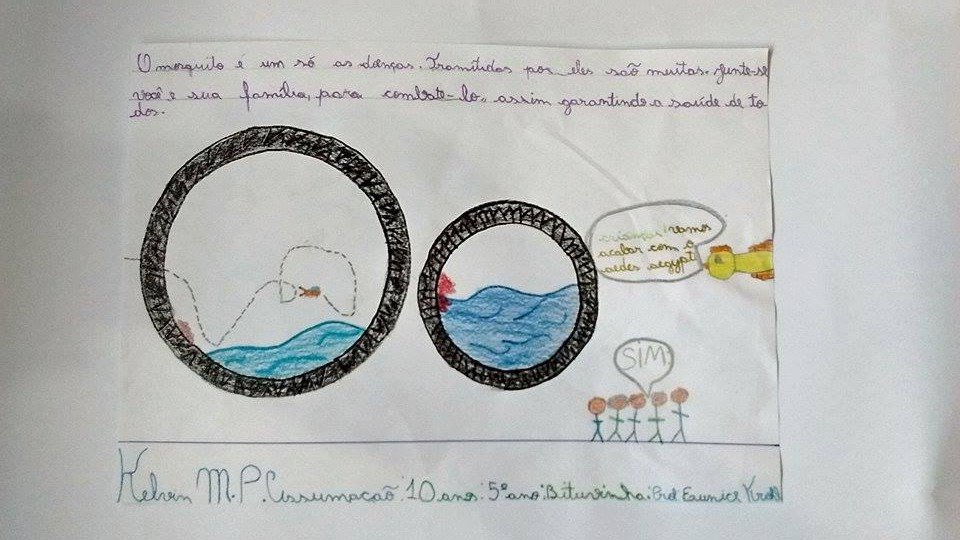 O mosquito é um só as doenças. Tramitidas por eles saõ muitas. junte-se
você e sua família, para combate-lo, assim garantindo a saúde de to
dos.
crianças vamos
acabar com o
aedes aegypt
SIM
Kelven M.P. Assumacaõ 10 anos 5º ano Bituvinha Prof Eaunice